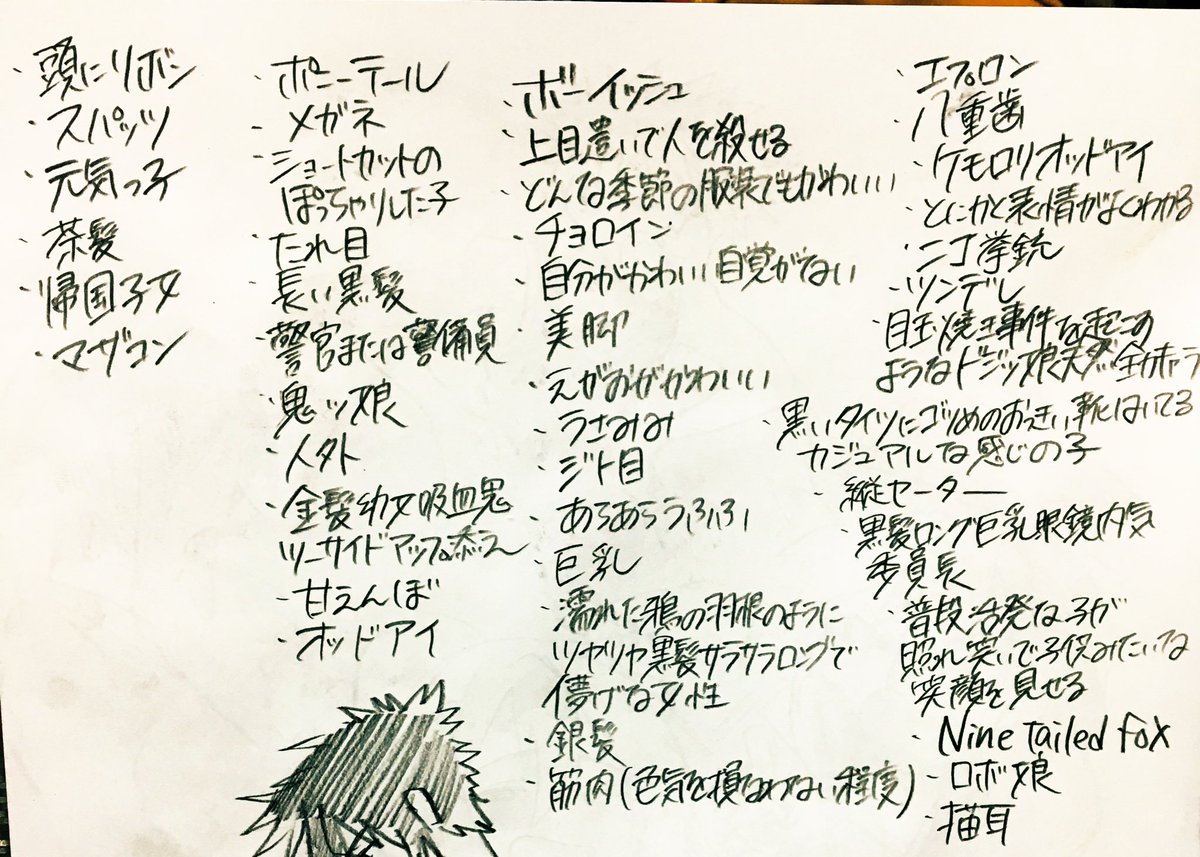 ・頭にリボン
・スパッツ
・元気っ子
・茶髪
・帰国子女
・マザコン
・ポニーテール
・メガネ
・ショートカットの
ぽっちゃりした子
・たれ目
・長い黒髪
・警官または警備員
・鬼ッ娘
・人外
・金髪幼女吸血鬼
ツーサイドアップ添え
・甘えんぼ
・オッドアイ
・ボーイッシュ
・上目遣いで人を殺せる
・どんな季節の服装でもかわいい
・チョロイン
・自分がかわいい自覚がない
・美脚
・えがおがかわいい
・うさみみ
・ジト目
・あらあらうふふ
・巨乳
・濡れた鴉の羽根のように
ツヤツヤ黒髪サラサラロングで
儚げな女性
・銀髪
・筋肉(色気を損なわない程度)
・エプロン
・八重歯
・ケモロリオッドアイ
・とにかく表情がよくわかる
・二丁拳銃
・ツンデレ
・目玉焼き事件を起こす
ようなドジッ娘
・黒いタイツにゴツめのおっきい靴はいてる
カジュアルな感じの子
・縦セーター
・黒髪ロング巨乳眼鏡内気
委員長
・普段活発な子が
照れ笑いで子供みたいな
笑顔を見せる
・Nine Tailed fox
・ロボ娘
・猫耳